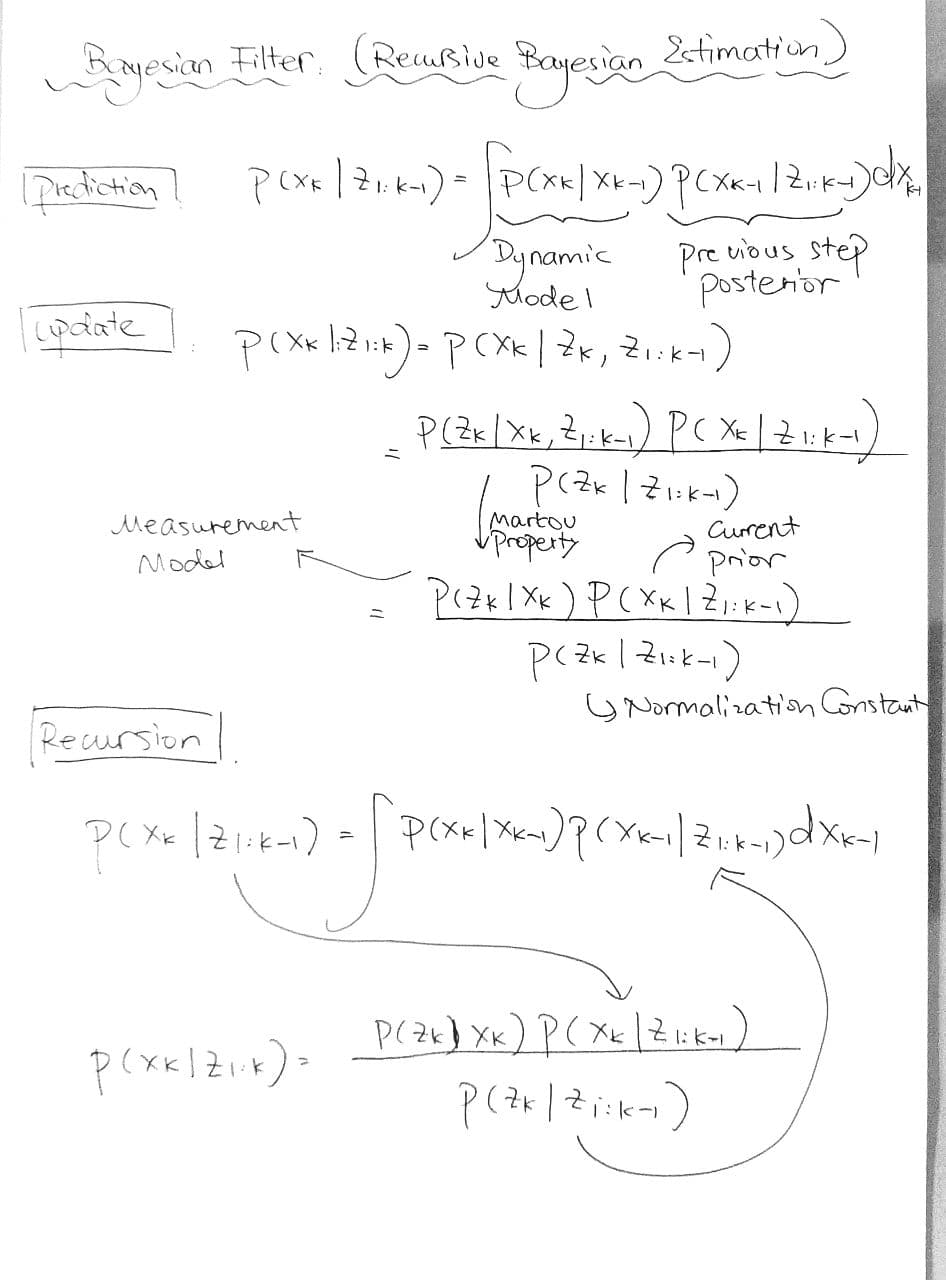 Bayesian Filter. (Recursive Bayesian Estimation)
Prediction P(xk | z1:k-1) = ∫ P(xk | xk-1) P(xk-1 | z1:k-1) dxk-1
Dynamic Model
Previous step posterior
Update P(xk | z1:k) = P(xk | zk, z1:k-1)
= P(zk | xk, z1:k-1) P(xk | z1:k-1)
P(zk | z1:k-1)
Markov Property
Current prior
Measurement Model
= P(zk | xk) P(xk | z1:k-1)
P(zk | z1:k-1)
↳ Normalization Constant
Recursion.
P(xk | z1:k-1) = ∫ P(xk | xk-1) P(xk-1 | z1:k-1) dxk-1
P(xk | z1:k) = P(zk | xk) P(xk | z1:k-1)
P(zk | z1:k-1)